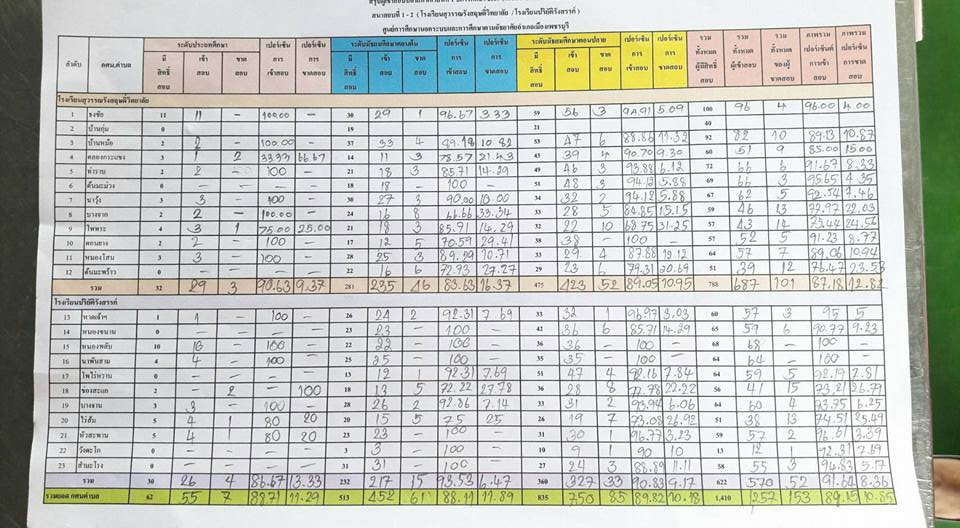 สนามสอบที่ 1 - 2 ( โรงเรียนสุวรรณรังสฤษดิ์วิทยาลัย /โรงเรียนปริยัติรังสรรค์ )
ศูนย์การศึกษานอกระบบและการศึกษาตามอัธยาศัยอำเภอเมืองเพชรบุรี
ลำดับ กศน.ตำบล ระดับประถมศึกษา เปอร์เซ็น เปอร์เซ็น ระดับมัธยมศึกษาตอนต้น เปอร์เซ็น เปอร์เซ็น ระดับมัธยมศึกษาตอนปลาย เปอร์เซ็น เปอร์เซ็น รวม รวม รวม ภาพรวม ภาพรวม
มี สิทธิ์ สอบ เข้า สอบ ขาด สอบ การ เข้าสอบ การ ขาดสอบ มี สิทธิ์ สอบ เข้า สอบ ขาด สอบ การ เข้าสอบ การ ขาดสอบ มี สิทธิ์ สอบ เข้า สอบ ขาด สอบ การ เข้าสอบ การ ขาดสอบ ทั้งหมด ผู้มีสิทธิ์ ทั้งหมด ผู้เข้าสอบ ทั้งหมด ของผู้ ขาดสอบ
โรงเรียนสุวรรณรังสฤษดิ์วิทยาลัย
1 ธงชัย 11 11 - 100.00 - 30 29 1 96.67 3.33 59 56 3 94.91 5.09 100 96 4 96.00 4.00
2 บ้านกุ่ม 0 19 21 40
3 บ้านหม้อ 2 2 - 100.00 - 37 33 4 89.18 10.82 53 47 6 88.86 11.32 92 82 10 89.13 10.87
4 คลองกระแชง 3 1 2 33.33 66.67 14 11 3 78.57 21.43 43 39 4 90.70 9.30 60 51 9 85.00 15.00
5 ท่าราบ 2 2 - 100 - 21 18 3 85.71 14.29 49 46 3 93.88 6.12 72 66 6 91.67 8.33
6 ต้นมะม่วง 0 - - - - 18 18 - 100 - 51 48 3 94.12 5.88 69 66 3 95.65 4.35
7 นาวุ้ง 3 3 - 100 - 30 27 3 90.00 10.00 34 32 2 94.12 5.88 67 62 5 92.54 7.46
8 บางจาก 2 2 - 100.00 - 24 16 8 66.66 33.34 33 28 5 84.85 15.15 59 46 13 77.97 22.03
9 ไพพระ 4 3 1 75.00 25.00 21 18 3 85.71 14.29 32 22 10 68.75 31.25 57 43 14 75.44 24.56
10 ดอนยาง 2 2 - 100 - 17 12 5 70.59 29.41 38 38 - 100 - 57 52 5 91.23 8.77
11 หนองโสน 3 3 - 100 - 28 25 3 89.29 10.71 33 29 4 87.88 12.12 64 57 7 89.06 10.94
12 ต้นมะพร้าว 0 - - - - 22 16 6 72.73 27.27 29 23 6 79.31 20.69 51 39 12 76.47 23.53
รวม 32 29 3 90.63 9.37 281 235 46 83.63 16.37 475 423 52 89.05 10.95 788 687 101 87.18 12.82
โรงเรียนปริยัติรังสรรค์
13 หาดเจ้าฯ 1 1 - 100 - 26 24 2 92.31 7.69 33 32 1 96.97 3.03 60 57 3 95 5
14 หนองขนาน 0 - - - - 23 23 - 100 - 42 36 6 85.71 14.29 65 59 6 90.77 9.23
15 หนองพลับ 10 10 - 100 - 22 22 - 100 - 36 36 - 100 - 68 68 - 100 -
16 นาพันสาม 4 4 - 100 - 25 25 - 100 - 35 35 - 100 - 64 64 - 100 -
17 โพไร่หวาน 0 - - - - 13 12 1 92.31 7.69 51 47 4 92.16 7.84 64 59 5 92.19 7.81
18 ช่องสะแก 2 - 2 - 100 18 13 5 72.22 27.78 36 28 8 77.78 22.22 56 41 15 73.21 26.79
19 บางจาน 3 3 - 100 - 28 26 2 92.86 7.14 33 31 2 93.94 6.06 64 60 4 93.75 6.25
20 ไร่ส้ม 5 4 1 80 20 20 15 5 75 25 26 19 7 73.08 26.92 51 38 13 74.51 25.49
21 หัวสะพาน 5 4 80 20 23 23 - 100 - 31 30 1 96.77 3.23 59 57 2 96.61 3.39
22 วังตะโก 0 - - - - 3 3 - 100 - 10 9 1 90 10 13 12 1 92.31 7.69
23 สำมะโรง 0 - - - - 31 31 - 100 - 27 24 3 88.89 11.11 58 55 3 94.83 5.17
รวม 30 26 4 86.67 13.33 232 217 15 93.53 6.47 360 327 33 90.83 9.17 622 570 52 91.64 8.36
รวมยอด กศน.ตำบล 62 55 7 88.71 11.29 513 452 61 88.11 11.89 835 750 85 89.82 10.18 1,410 1257 153 89.15 10.85